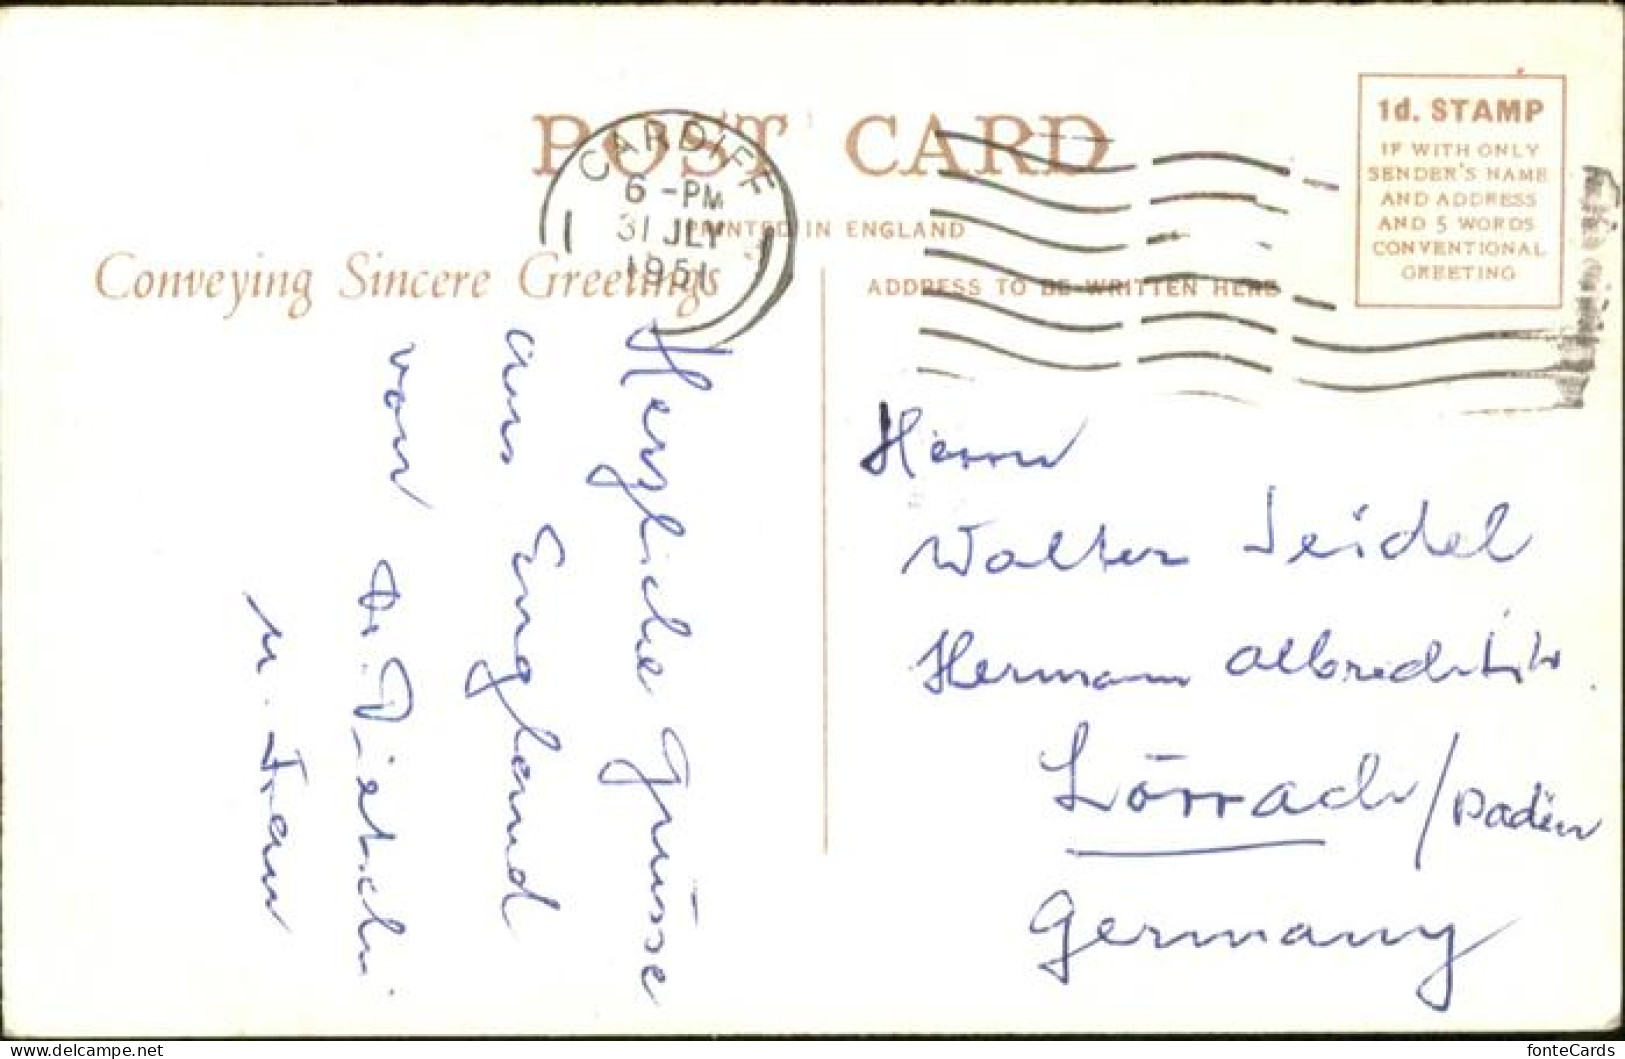 POST CARD
CARDIFF
6 - PM
31 JLY
1951
PRINTED IN ENGLAND
1d. STAMP
IF WITH ONLY
SENDER'S NAME
AND ADDRESS
AND 5 WORDS
CONVENTIONAL
GREETING
Conveying Sincere Greetings
ADDRESS TO BE WRITTEN HERE
Herzliche Grüsse
aus England
von Dr. Dietschi
u. Frau
Herrn
Walter Seidel
Hermann Albrechtstr
Lörrach/Baden
Germany
www.delcampe.net
fonteCards